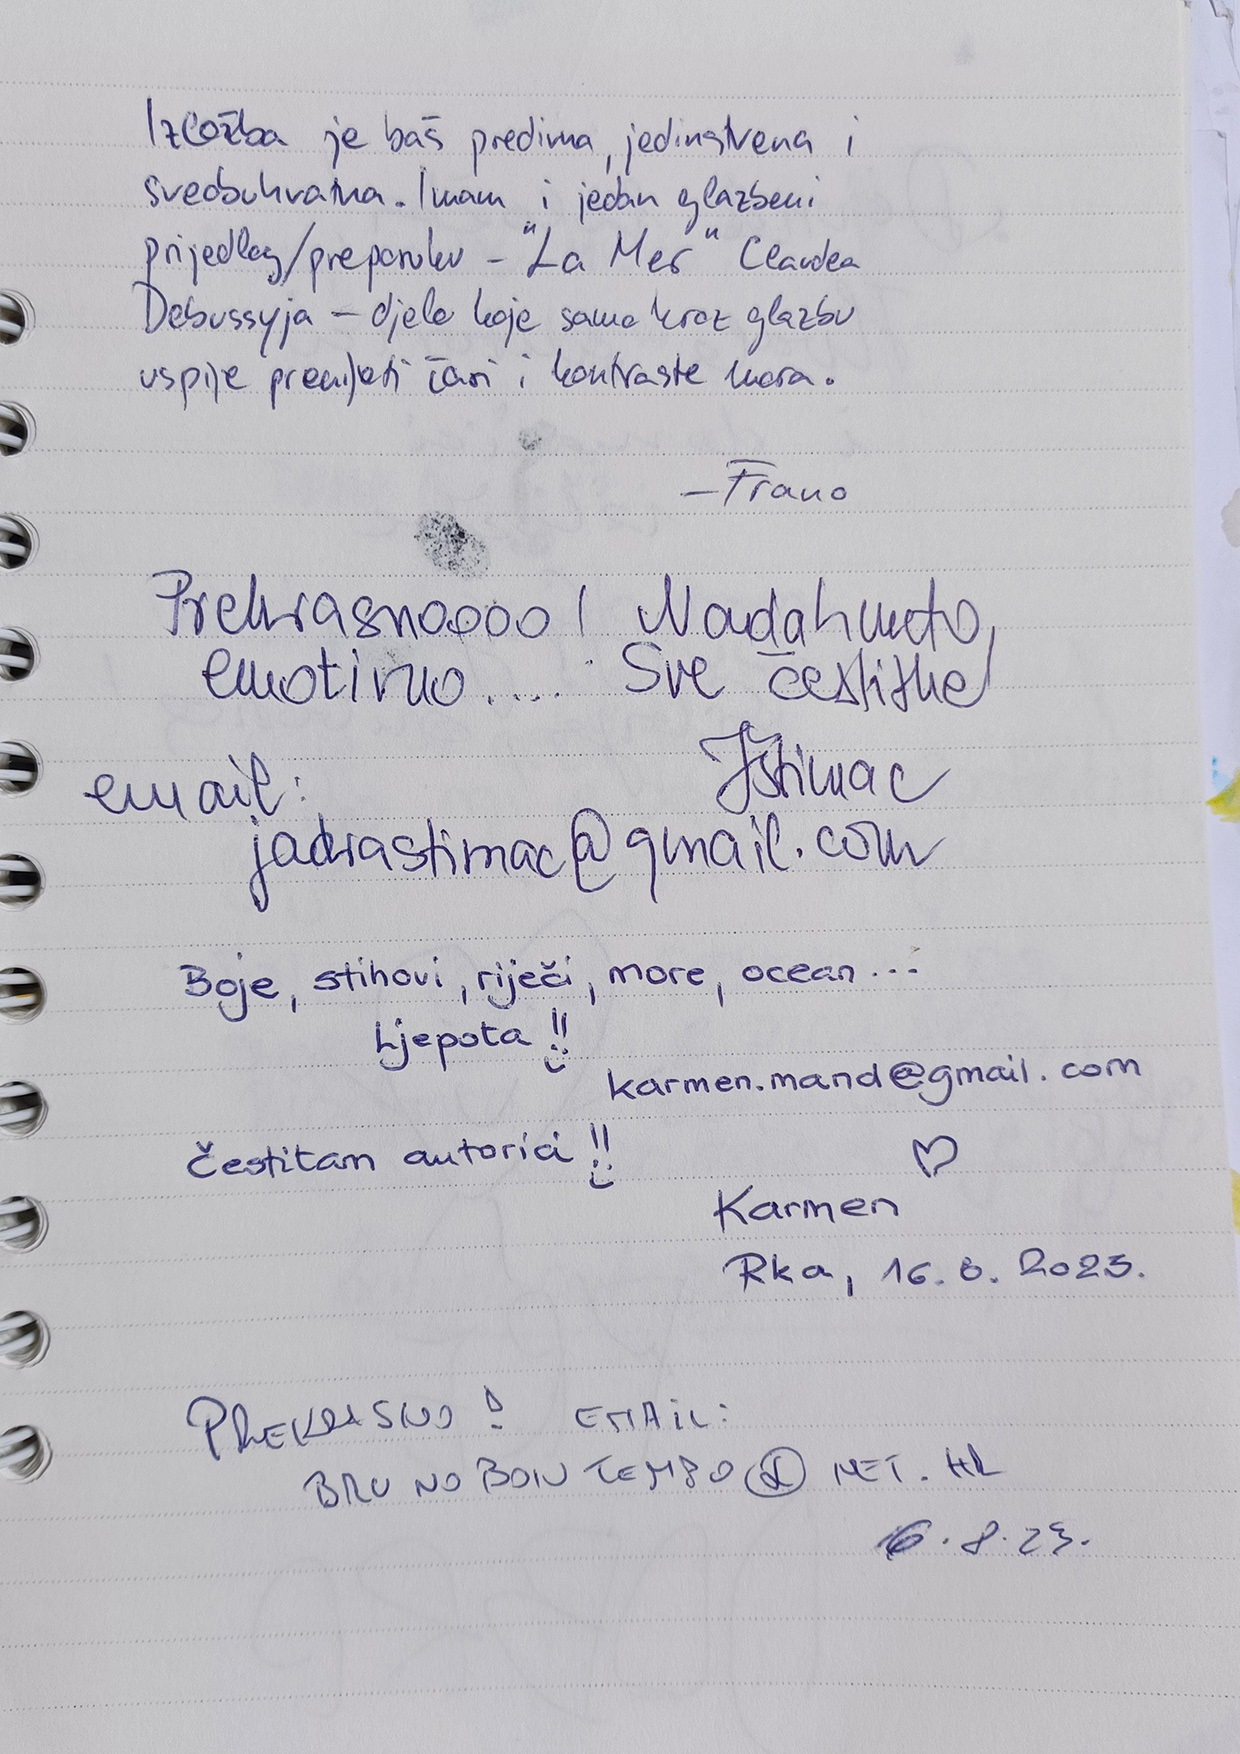 Izložba je baš predivna, jedinstvena i
sveobuhvatna. Imam i jedan glazbeni
prijedlog/preporuku - "La Mer" Claudea
Debussyja - djelo koje samo kroz glazbu
uspije prenijeti čari i kontraste mora.
- Frano
Prekrasnoooo! Nadahnuto,
emotivno.... Sve čestitke
JŠtimac
email:
jadrastimac@gmail.com
Boje, stihovi, riječi, more, ocean...
Ljepota!!
karmen.mand@gmail.com
Čestitam autorici!!
Karmen
Rka, 16.8.2023.
PREKRASNO! EMAIL:
BRUNOBONTEMPO@NET.HR
6.8.23.